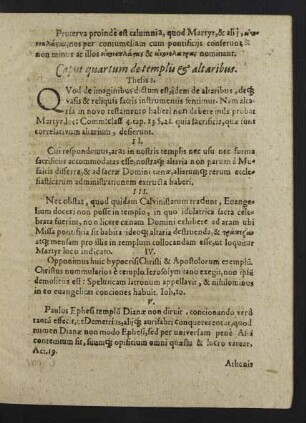 Proterva proinde est calumnia, quod Martyr, & alij,
nos per contumeliam cum pontificijs conferunt &
non minus ac illos nominant.
Caput quartum de templis & altaribus.
Thesis I.
QVod de imaginibus dictum est, idem de altaribus, deq;
vasis & reliquis sacris instrumentis sentimus. Nam alta-
ria in novo testamento haberi non debere inde probat
Martyr, loc: Com: class 4. cap. 15. 21. quia sacrificia, quæ sunt
correlativum altarium, desierunt.
II.
Cui respondemus, aras in nostris templis nec usu nec forma
sacrificiis accommodatas esse, nostraq; altaria non parum à Mo-
saicis differre, & ad sacræ Domini cœnæ, aliarumq; rerum eccle-
siasticarum administrationem extructa haberi.
III.
Nec obstat, quod quidam Calvinistarum tradunt, Evange-
lium doceri non posse in templo, in quo idolatrica sacra cele-
brata fuerint, non licere cœnam Domini exhibere ad aram ubi
Missa pontificia sit habita ideoq; altaria destruenda, &
mensam pro illis in templum collocandam esse, ut loquitur
Martyr loco indicato.
IV.
Opponimus huic hypocrisi Christi & Apostolorum exemplũ.
Christus nummularios è templo Ierosolymitano exegit, non ipsũ
demolitus est: Speluncam latronum appellavit, & nihilominus
in eo evangelicas conciones habuit. Ioh. 10.
V.
Paulus Ephesi templũ Dianæ non diruit, concionando verò
tantũ effecit, ut Demetrius, aliiq; aurifabri conquererentur, quod
numen Dianæ non modo Ephesi, sed per universam penè Asiã
contemtum sit, suumq; opificium omni quæstu & lucro vacare.
Act. 19.
Athenis